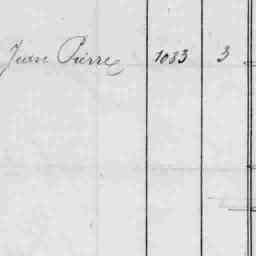 Jean Pierre 1083 3